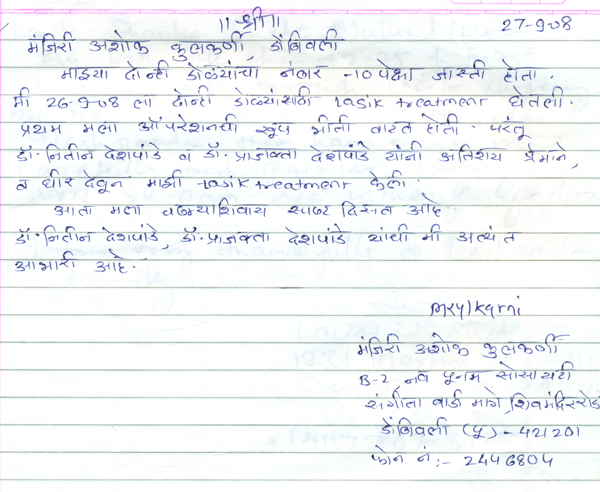 ॥श्री॥
27-9-08
मंजिरी अशोक कुलकर्णी, डोंबिवली
माझ्या दोन्ही डोळ्यांचा नंबर -10 पेक्षा जास्ती होता.
मी 26-9-08 ला दोन्ही डोळ्यांसाठी Lasik treatment घेतली.
प्रथम मला ऑपरेशनची खूप भीती वाटत होती. परंतू
डॉ. नितीन देशपांडे व डॉ. प्राजक्ता देशपांडे यांनी अतिशय प्रेमाने,
व धीर देवून माझी Lasik treatment केली.
आता मला चष्म्याशिवाय स्पष्ट दिसत आहे.
डॉ. नितीन देशपांडे, डॉ. प्राजक्ता देशपांडे यांची मी अत्यंत
आभारी आहे.
मंजिरी अशोक कुलकर्णी
B-2 नव पूनम सोसायटी
संगीता वाडी मागे, शिवमंदिर रोड
डोंबिवली (पू) - 421201
फोन नं :- 2446804